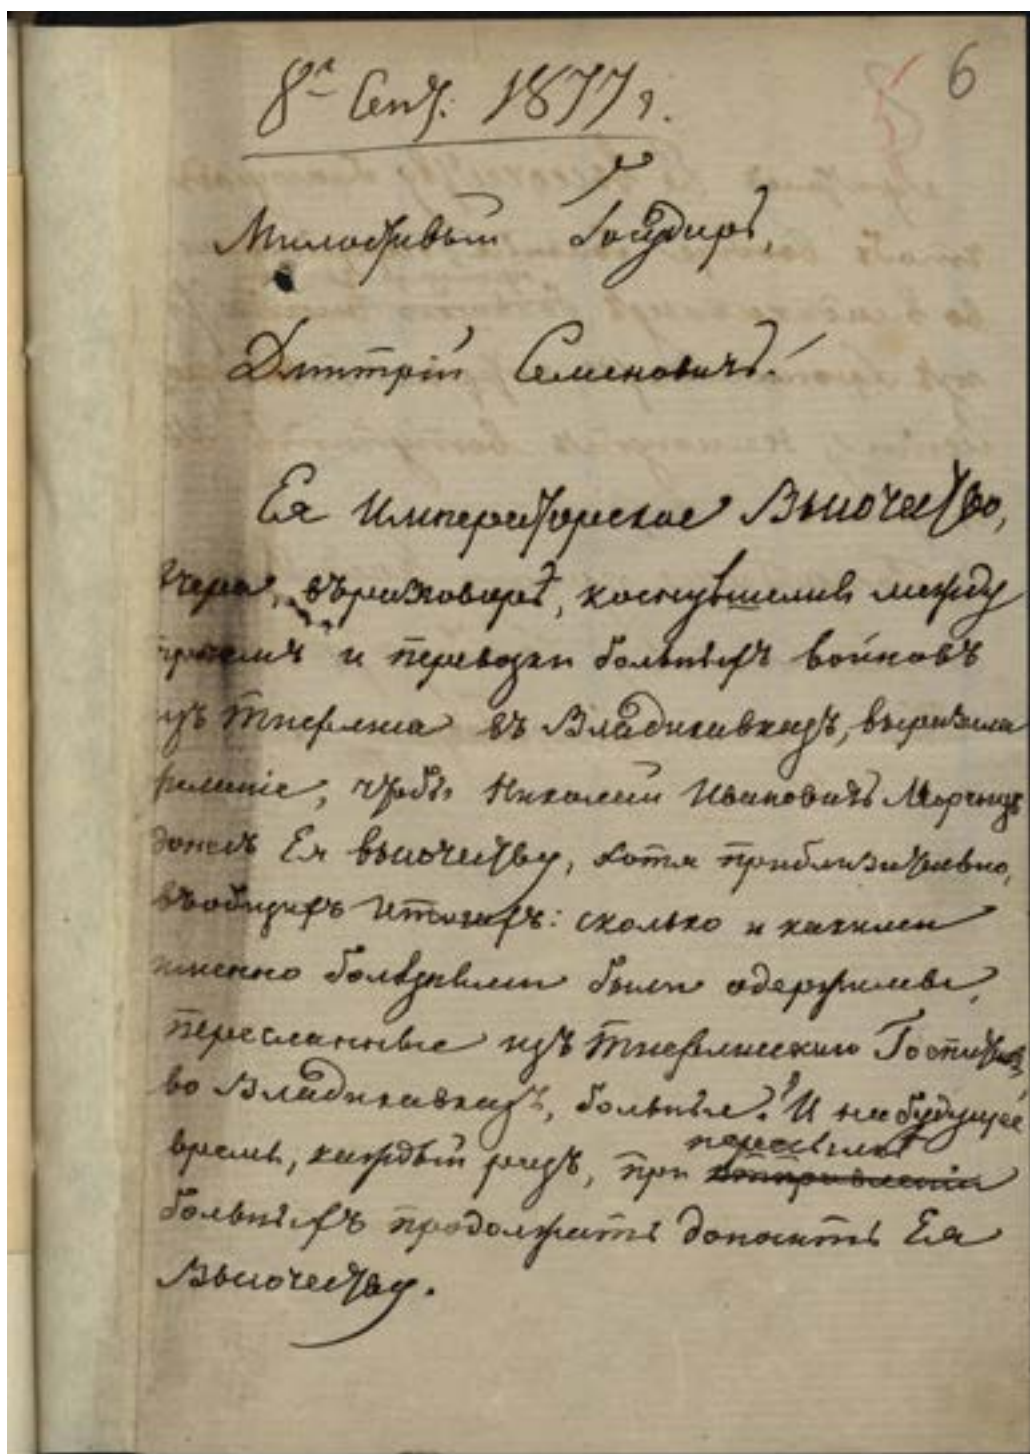 6
8го Сент. 1877 г.
Милостивый Государь,
Дмитрій Семеновичъ!
Ея Императорское Высочество,
вчера, въ разговорѣ, коснувшемся между
прочимъ и перевозки больныхъ воиновъ
изъ Тифлиса въ Владикавказъ, выразила
желаніе, чтобъ Николай Ивановичъ
донесъ Ея Высочеству, хотя приблизительно,
въ общихъ итогахъ: сколько и какими
именно болѣзнями были одержимы,
пересланные изъ Тифлисскаго Госпиталя,
во Владикавказъ, больные? И на будущее
время, каждый разъ, при пересылкѣ отправленіи
больныхъ продолжать доносить Ея
Высочеству.